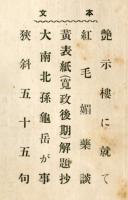 本文
艶示樓に就て
紅毛媚藥談
黃表紙(寬政後期)解題抄
大南北孫龜岳が事
狹斜五十五句